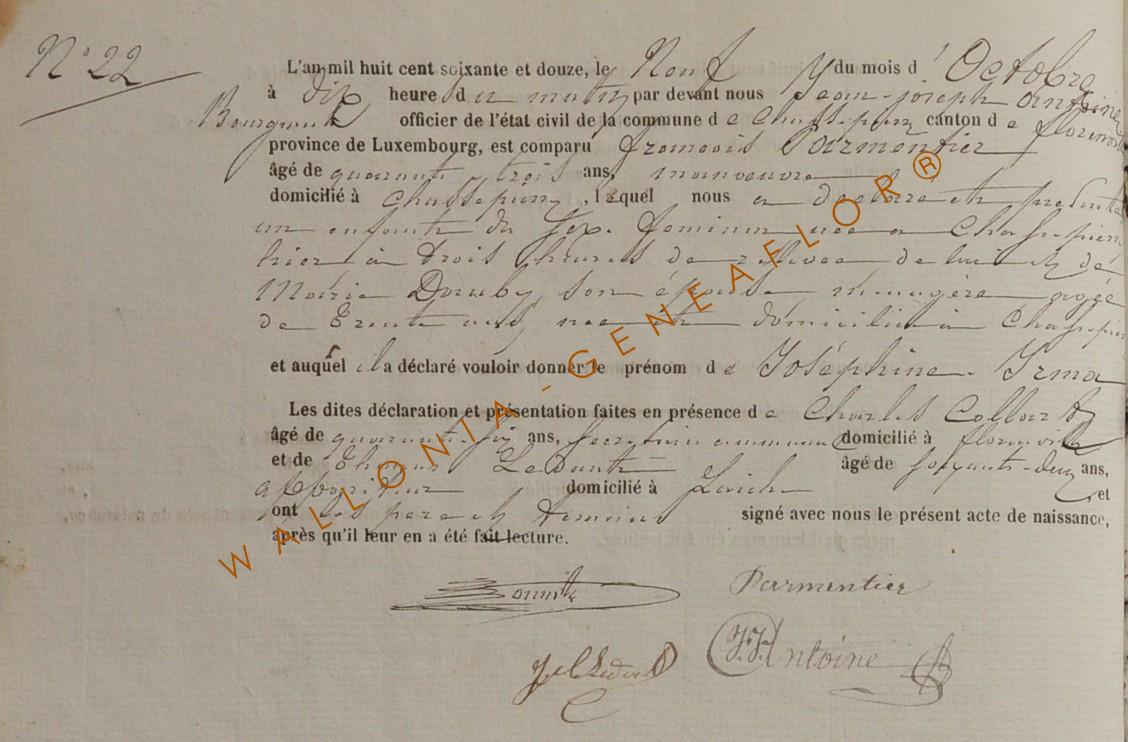 N° 22
L'an mil huit cent soixante et douze, le Neuf du mois d'Octobre
à dix heure du matin par devant nous Jean-Joseph Antoine
Bourgmestre officier de l'état civil de la commune de Chassepierre canton de Florenville
province de Luxembourg, est comparu François Parmentier
âgé de quarante trois ans, manoeuvre
domicilié à Chassepierre, lequel nous a déclaré et présenté
un enfant du sex. feminin née a Chassepierre
hier à trois heures de relevée de lui et de
Marie Douby son épouse menagère agée
de trente ans, née et domiciliée à Chassepierre
et auquel il a déclaré vouloir donner le prénom de Joséphine. Irma
Les dites déclaration et présentation faites en présence de Charles Collart
âgé de quarante-six ans, secretaire communal domicilié à Florenville
et de Ledent âgé de soixante-deux ans,
domicilié à Laiche et
ont les pere et temoins signé avec nous le présent acte de naissance,
après qu'il leur en a été fait lecture.
Parmentier
J.J. Antoine
WALLONIA-GENEAFLOR®